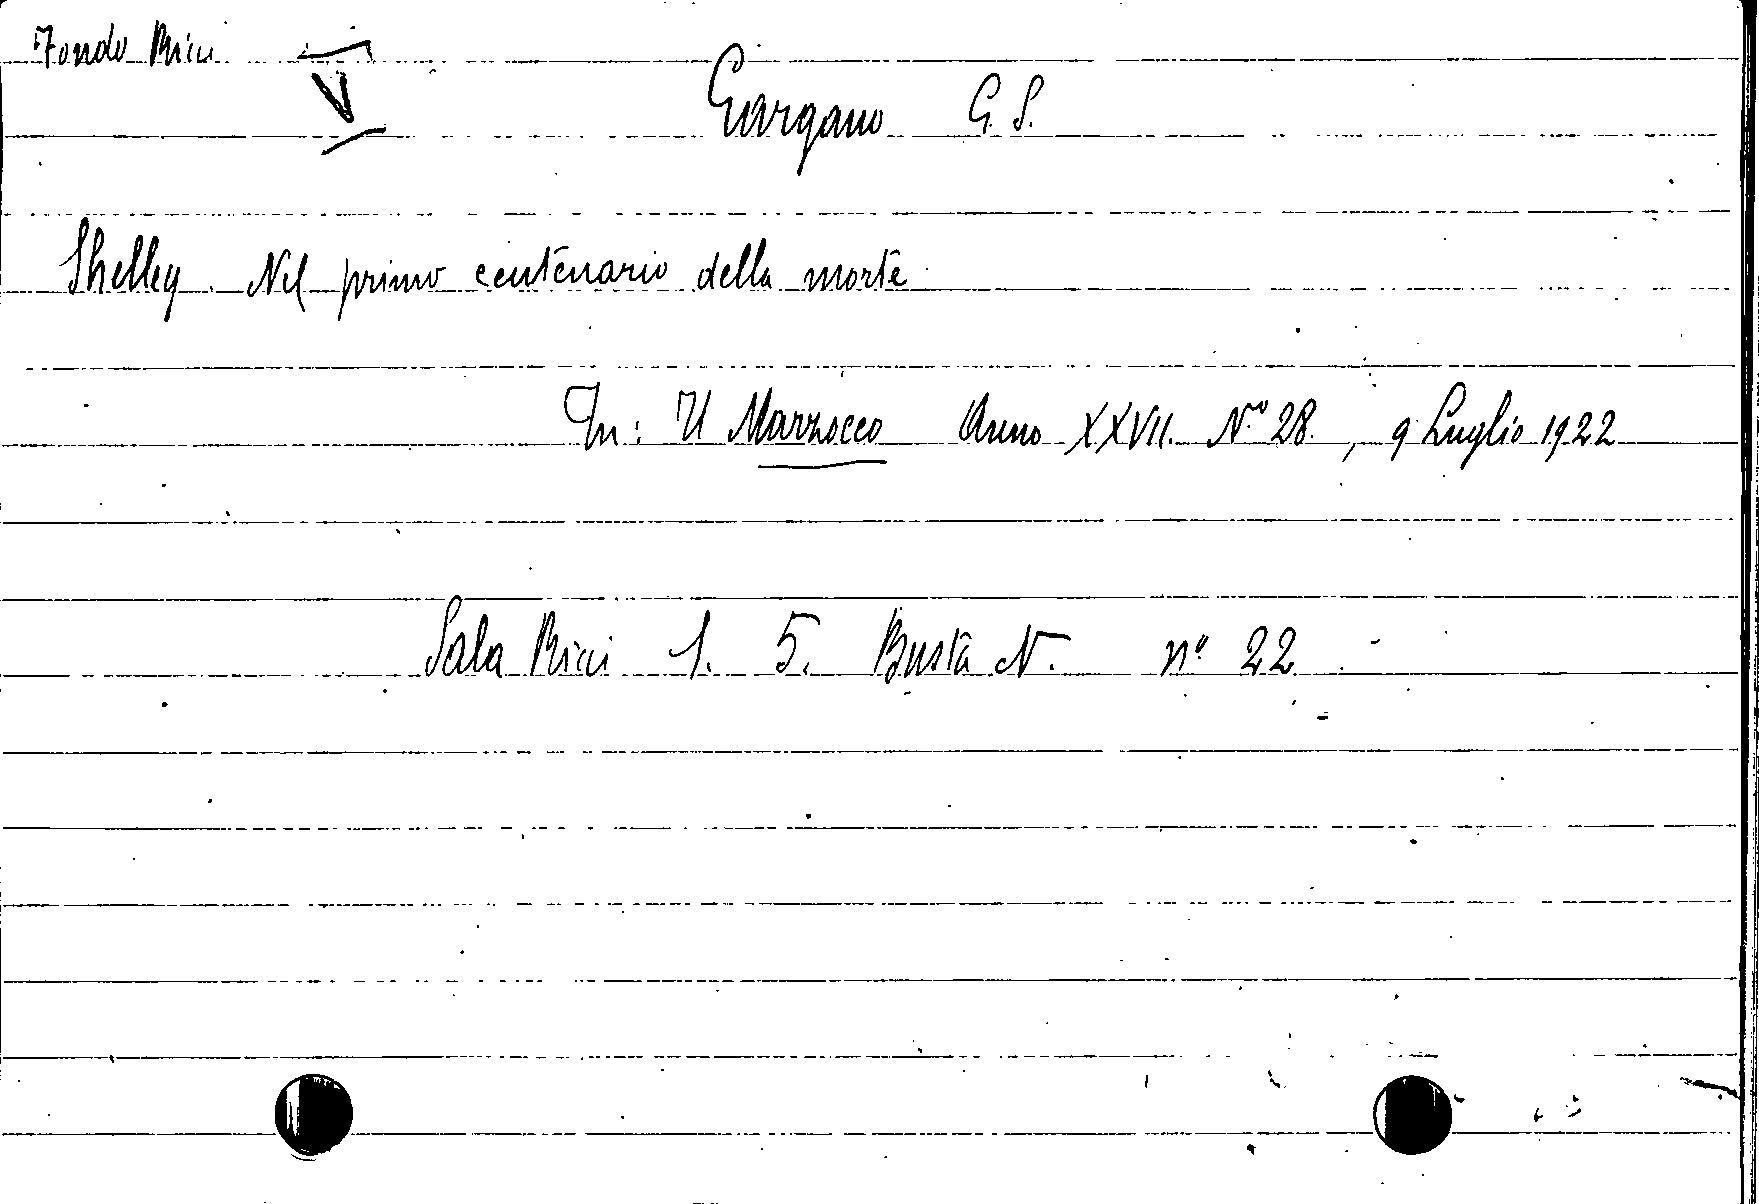 Fondo Ricci V
Gargano G. S.
Shelley. Nel primo centenario della morte.
In: Il Marzocco Anno XXVII. N.º 28., 9 Luglio 1922
Sala Ricci 1. 5. Busta N. nº 22.